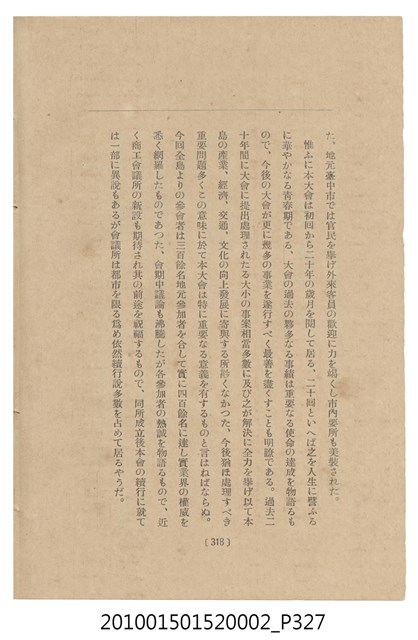 た、地元臺中市では官民を擧げ外來客員の歡迎に力を竭くし市內要所も美裝された。
惟ふに本大會は初回から二十年の歲月を閱して居る、二十回といへば之を人生に譬ふる
に華やかなる青春期である、大會の過去の夥多なる事績は重要なる使命の達成を物語るも
ので、今後の大會が更に幾多の事業を遂行すべく最善を盡くすことも明瞭である。過去二
十年間に大會に提出處理されたる大小の事案相當多數に及び之が解決に全力を擧げ以て本
島の產業、經濟、交通、文化の向上發展に寄與する所尠くなかつた、今後猶ほ處理すべき
重要問題多くこの意味に於て本大會は特に重要なる意義を有するものと言はねばならぬ。
今回全島よりの參會者は三百餘名地元參加者を合して實に四百餘名に達し實業界の權威を
悉く網羅したものであつた、會期中議論も沸騰したが各參加者の熱誠を物語るもので、近
く商工會議所の新設も期待され其の前途を祝福するもので、同所成立後本會の續行に就て
は一部に異說もあるが會議所は都市を限る爲め依然續行說多數を占めて居るやうだ。
( 318 )
201001501520002_P327